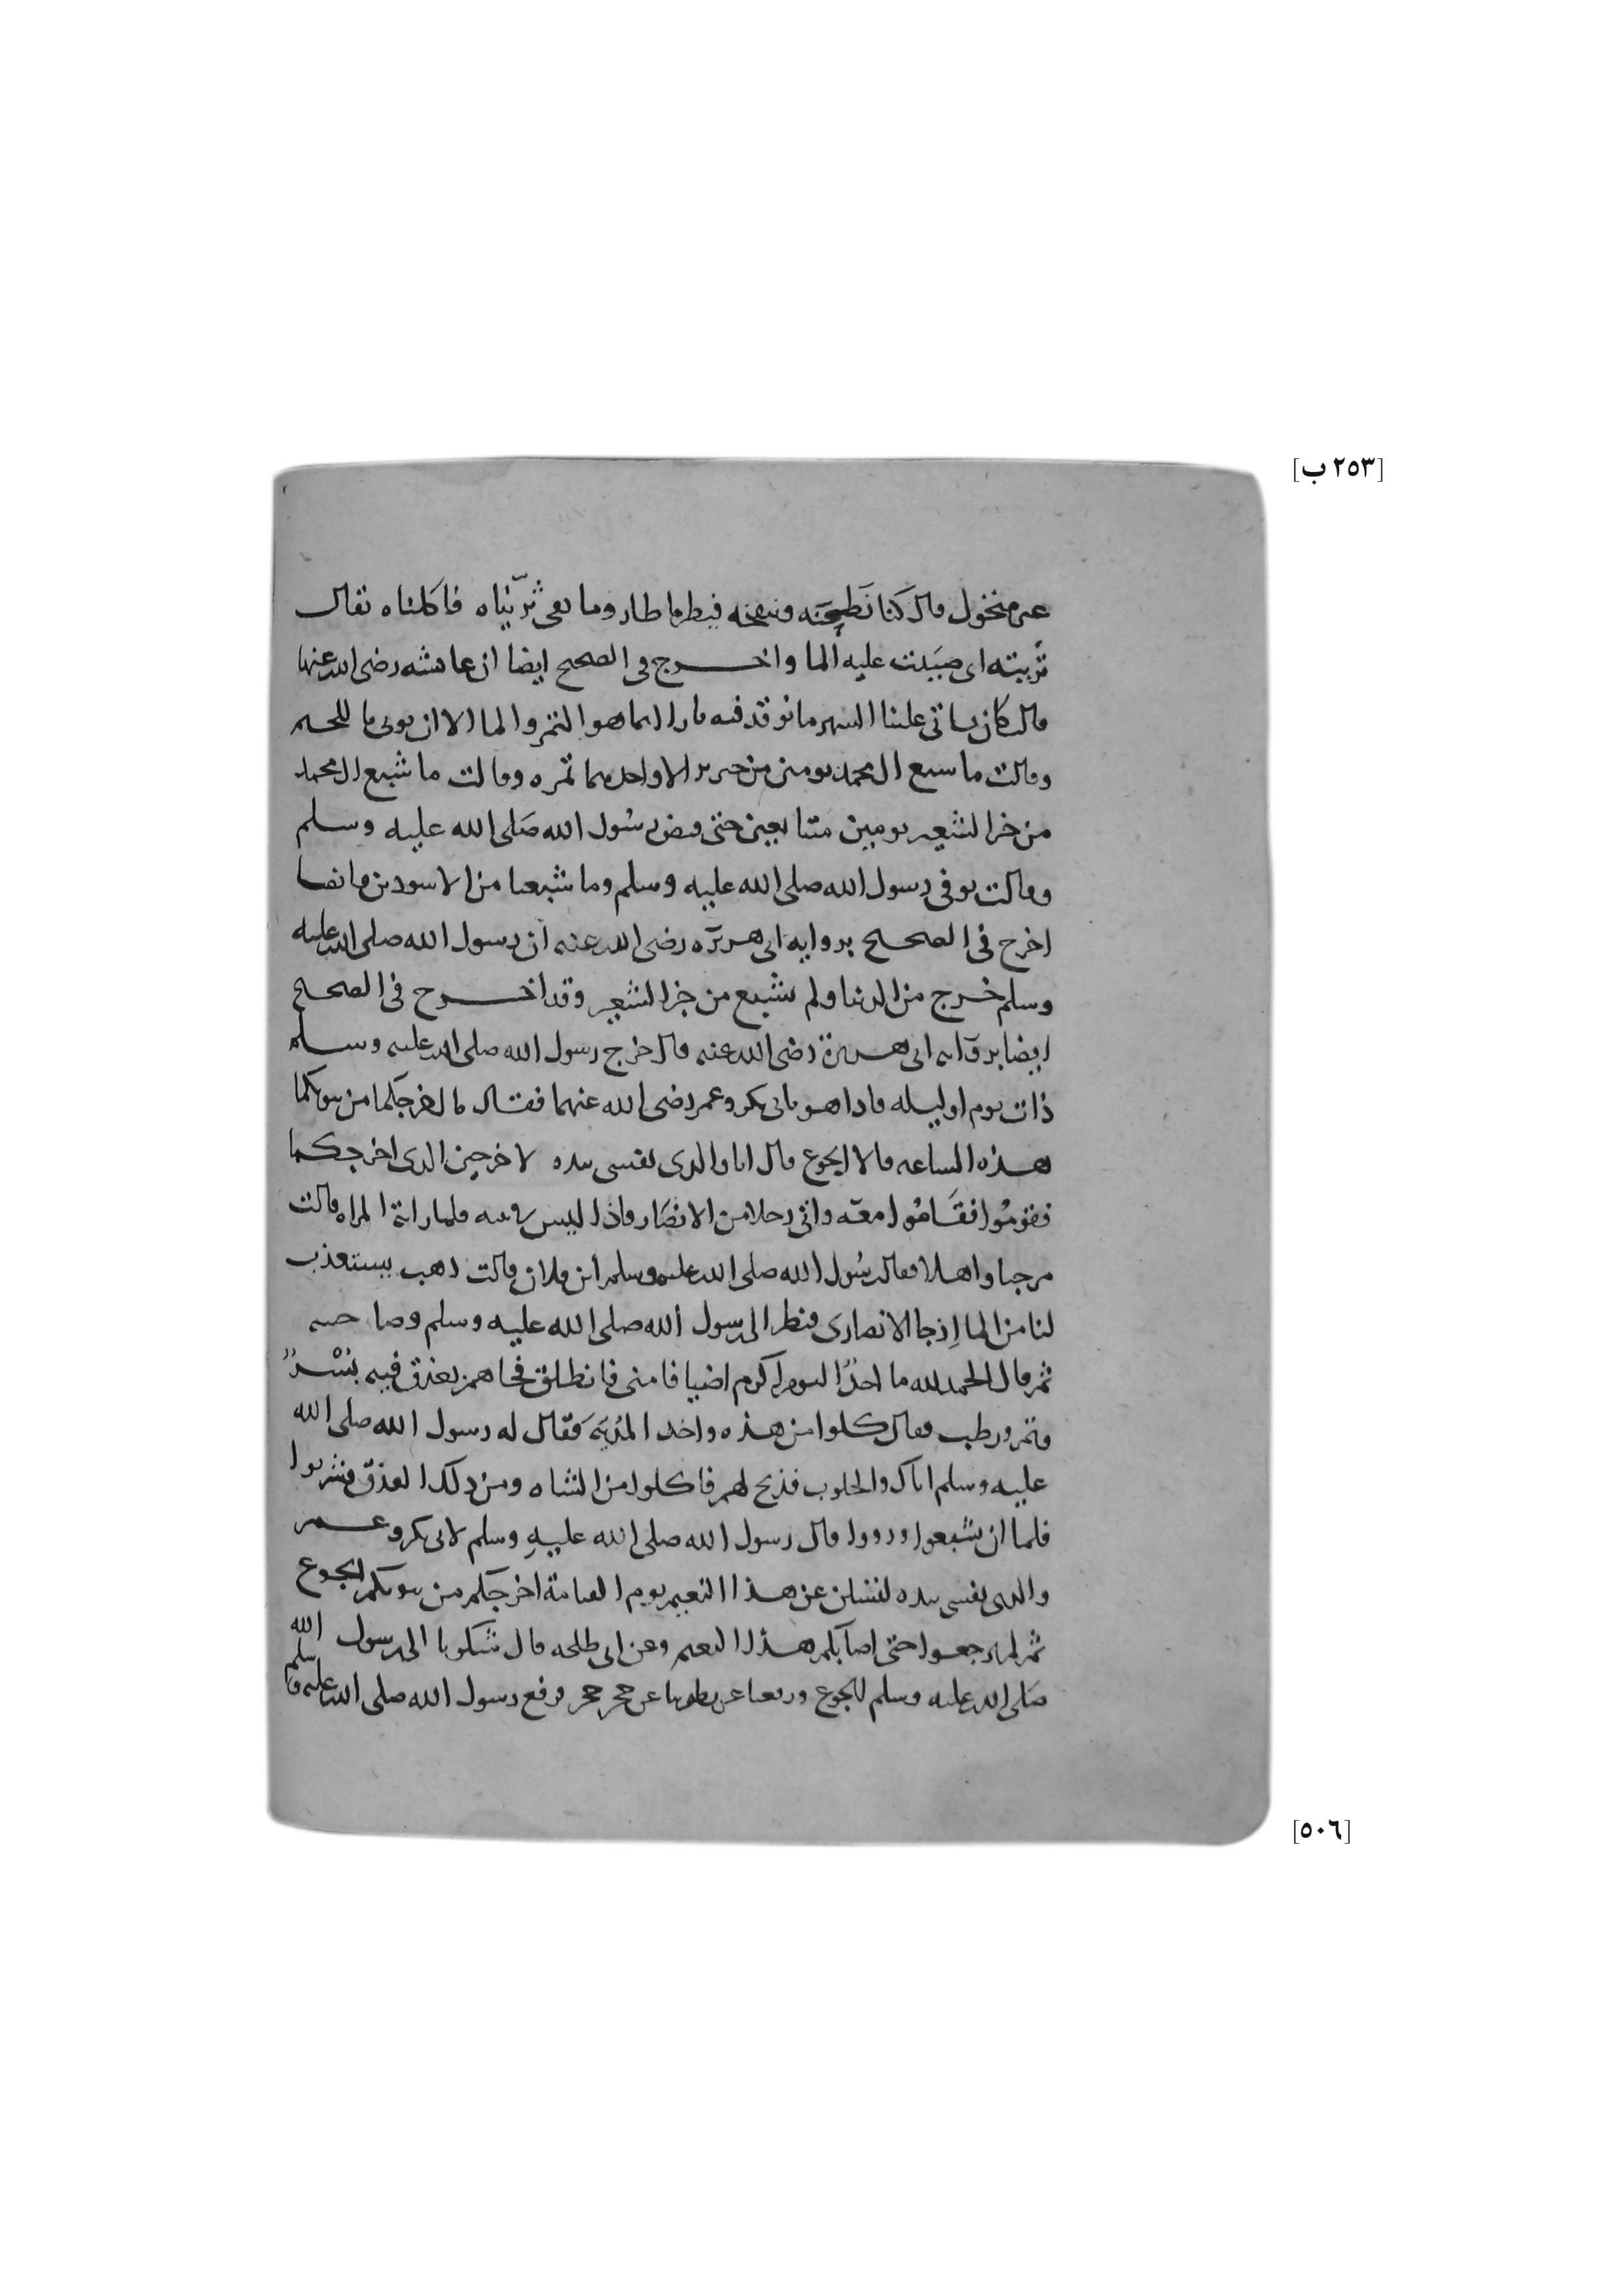 [٢٥٣ ب]
غير منخول قال كنا نَطحَنه وننفخه فيطير ما طار وما بقي ثرّيناه فاكلناه يقال
ثريته اى صَبَبت عليه الما واخرج في الصحيح ايضا ان عائشه رضى الله عنها
قالت كان ياتى علينا الشهر ما نوقد فيه نارا انما هو التمر والما الا ان نوتى باللحم
وقالت ما شبع ال محمد يومين من خبز بر الا واحدهما تمره وقالت ما شبع ال محمد
من خبز الشعير يومين متتابعين حتى قبض رسُول الله صَلى الله عليه وسلم
وقالت توفى رسول الله صلى الله عليه وسلم وما شبعنا من الاسودين وايضا
اخرج فى الصحيح بروايه ابى هريره رضى الله عنه ان رسول الله صلى الله عليه
وسلم خرج من الدنيا ولم يشبع من خبز الشعير وقد اخرج فى الصحيح
ايضا بروايه ابى هريرة رضى الله عنه قال خرج رسول الله صلى الله عليه وسلم
ذات يوم او ليله فاذا هو بابى بكر وعمر رضى الله عنهما فقال ما اخرجكما من بيوتكما
هذه الساعه قالا الجوع قال انا والذى نفسى بيده لاخرجنى الذى اخرجكما
فقومُوا فقَامُوا معَه واتى رجلا من الانصَار فاذا ليس فى بيته فلما راته المراه قالت
مرحبا واهلا فقال رسُول الله صلى الله عليه وسلم اين فلان قالت ذهب يستعذب
لنا من الما اِذ جا الانصارى فنظر الى رسول الله صلى الله عليه وسلم وصاحبيه
ثم قال الحمد لله ما احدٌ اليوم اكرم اضيافا منى فانطلق فجاهم بعذق فيه بُسْرٌ
وتمر ورطب فقال كلوا من هذه واخذ المُديَة فقال له رسول الله صلى الله
عليه وسلم اياك والحلوب فذبح لهم فاكلوا من الشاه ومن ذلك العذق وشربوا
فلما ان شبعوا ورووا قال رسول الله صلى الله عليهِ وسلم لابى بكر وعمر
والذى نفسى بيده لتسئلن عن هذا النعيم يوم القيامة اخرجكم من بيوتكم الجوع
ثم لم ترجعوا حتى اصابكم هذا النعيم وعن ابى طلحه قال شكونا الى رسول الله
صَلى الله عليه وسلم الجوع ورفعنا عن بطوننا عن حجر حجر فرفع رسول الله صلى الله عليه وسلم
[٥٠٦]